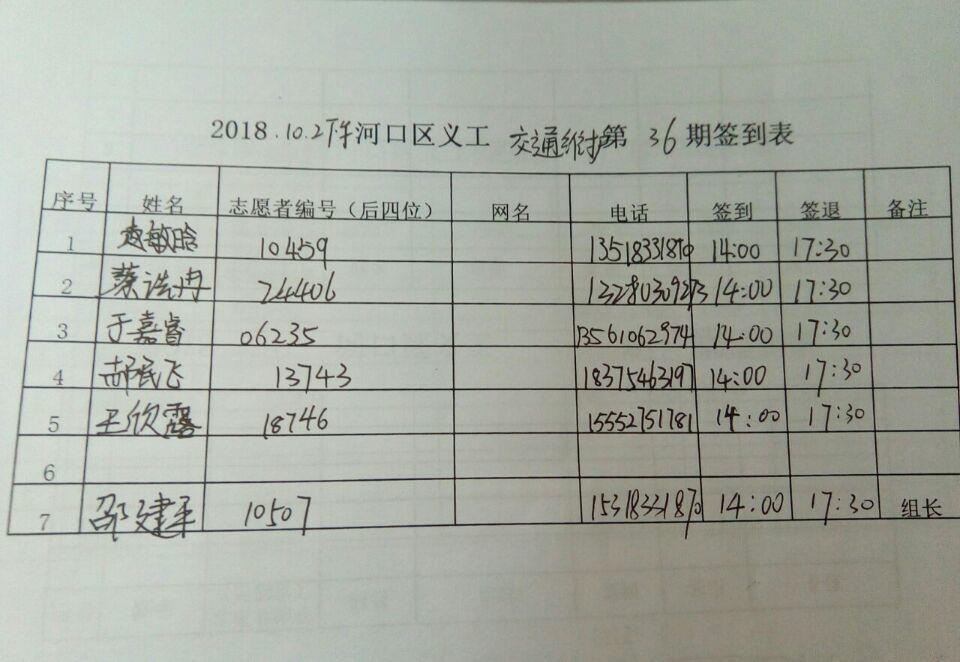 2018.10.2下午河口区义工 交通维护第 36 期签到表
序号 姓名 志愿者编号（后四位） 网名 电话 签到 签退 备注
1 敏晗 10459 13518331870 14:00 17:30
2 蔡诰冉 24406 13280309273 14:00 17:30
3 于嘉睿 06235 13561062974 14:00 17:30
4 郝民飞 13743 18375463197 14:00 17:30
5 王欣露 18746 15552751781 14:00 17:30
6
7 邵建平 10507 15318331870 14:00 17:30 组长